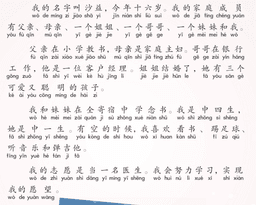 我的名字叫沙益，今年十六岁。我的家庭成员
wǒ de míng zì jiào shā yì jīn nián shí liù suì wǒ de jiā tíng chéng yuán
有父亲、母亲、一个姐姐、一个哥哥、一个妹妹和我。
yǒu fù qīn mǔ qīn yí gè jiě jie yí gè gē ge yí gè mèi mei hé wǒ
父亲在小学教书，母亲是家庭主妇。哥哥在银行
fù qīn zài xiǎo xué jiāo shū mǔ qīn shì jiā tíng zhǔ fù gē ge zài yín háng
工作，他是一位客户经理。姐姐结婚了，她有三个
gōng zuò tā shì yí wèi kè hù jīng lǐ jiě jie jié hūn le tā yǒu sān gè
可爱又聪明的孩子。
kě ài yòu cōng míng de hái zi
我和妹妹在全寄宿中学念书。我是中四生，
wǒ hé mèi mei zài quán jì sù zhōng xué niàn shū wǒ shì zhōng sì shēng
她是中一生。有空的时候，我喜欢看书、踢足球、
tā shì zhōng yī shēng yǒu kòng de shí hou wǒ xǐ huan kàn shū tī zú qiú
听音乐和弹吉他。
tīng yīn yuè hé tán jí tā
我的志愿是当一名医生。我会努力学习，实现
wǒ de zhì yuàn shì dāng yì míng yī shēng wǒ huì nǔ lì xué xí shí xiàn
我的愿望。
wǒ de yuàn wàng